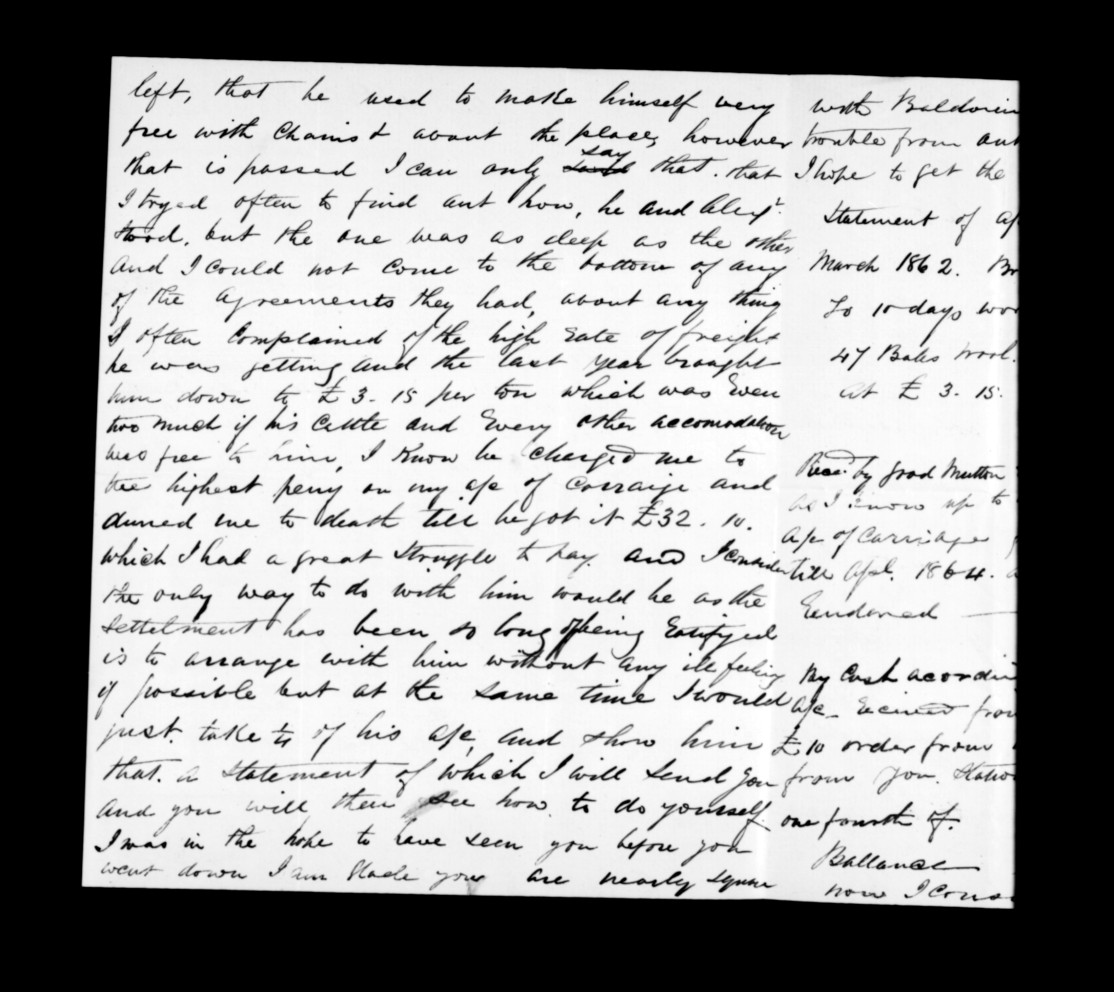 left, that he used to make himself very
free with Chains & about the place, however
that is passed I can only say that. that
I tryed often to find aut how, he and Alexr.
stood, but the one was as deep as the other
and I could not come to the bottom of any
of the agreements they had, about any thing
I often Complained of the high Rate of freight
he was getting and the last year braught
him down to £3.15 per ton which was Even
too much if his Cattle and Every other accomodation
was free to him, I know he charged me to
the highest penny on my a/c of Carraige and
dunned me to death till he got it £32.10.
which I had a great struggle to pay. and I consider
the only way to do with him would be as the
settelment has been so long of being
is to arrange with him without any ill feeling
if possible but at the same time I would
just take to of his a/c, and show him
that. a statement of which I will send you
and you will then see how to do yourself.
I was in the hope to have seen you before you
went down I am Glade you are nearly square
with Baldwin
trouble from aut
I hope to get the
Statement of a/
March 1862. Br
To 10 days wor
47 Bales Wool.
at £3.15.
Recd. by good Mutton
as I know up to
a/c of Carriage
till Apl. 1864.
By Cash accordin
a/c from
£10 order from
from you. Station
one fourth of.
Ballance
now I Cons